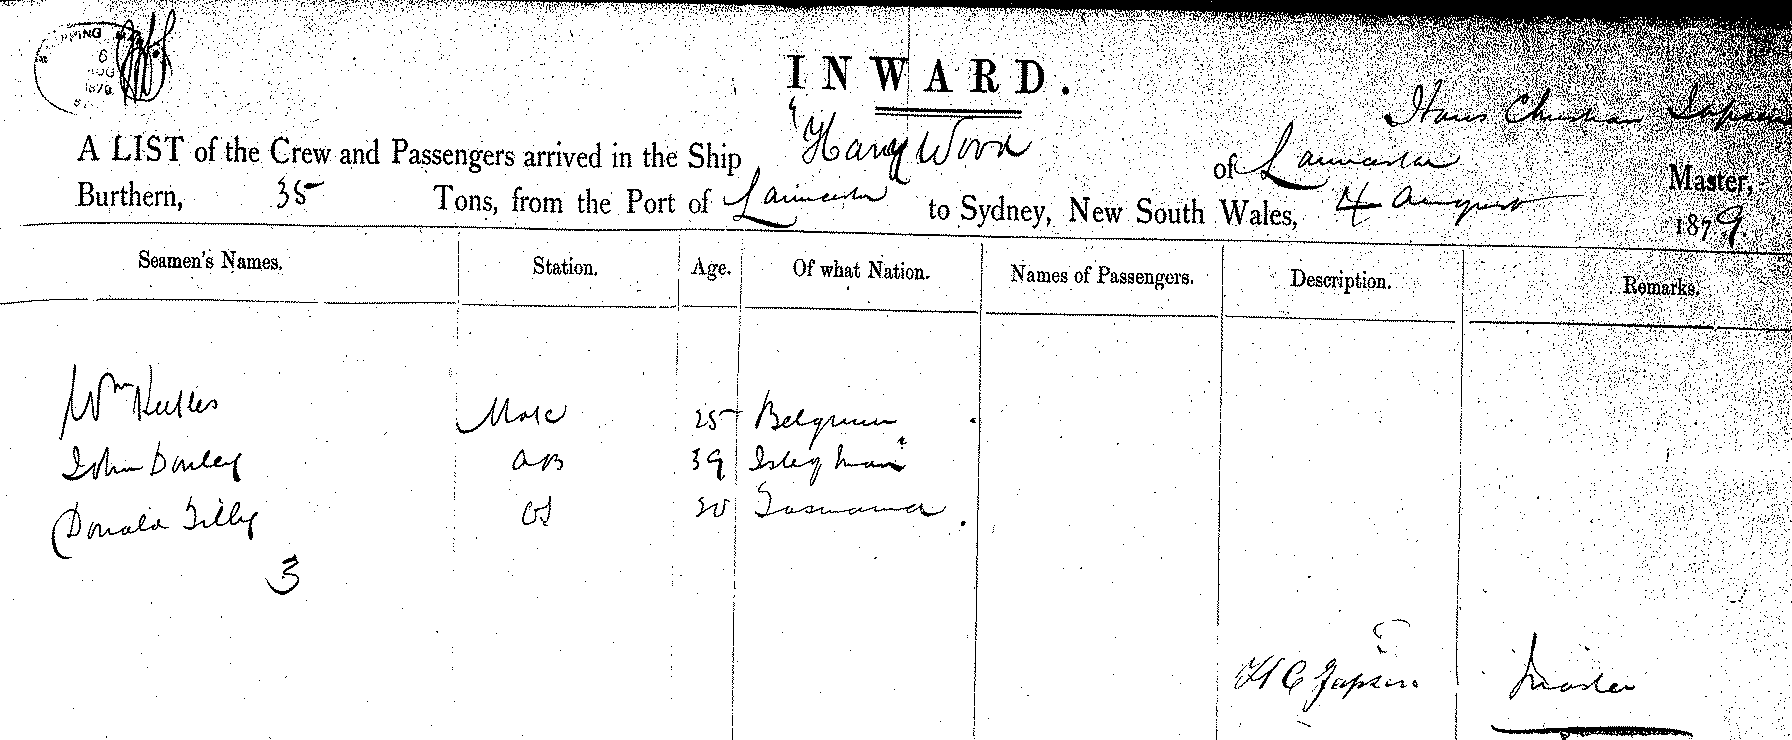 SHIPPING
6
AUG
1879
INWARD.
Hans Christian Japsen
A LIST of the Crew and Passengers arrived in the Ship "Harry Wood of Launceston Master,
Burthern, 35 Tons, from the Port of Launceston to Sydney, New South Wales, 4 August 1879
Seamen's Names. Station. Age. Of what Nation. Names of Passengers. Description. Remarks.
Wm Mate 25 Belgium
John Donley AB 39 Isle of Man
Donald Tilly OS 20 Tasmania
3
H C Japsen Master